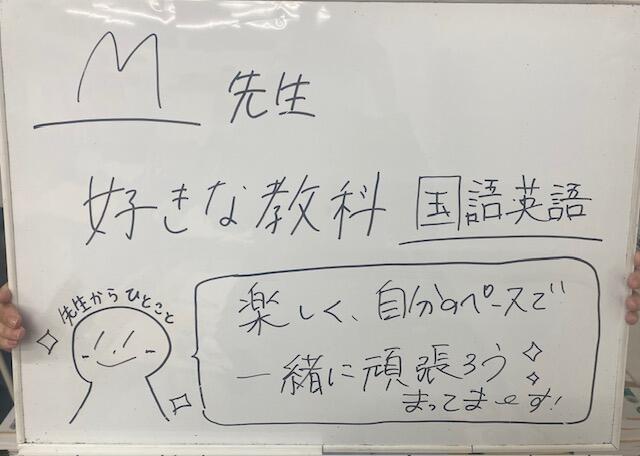 M 先生
好きな教科 国語英語
先生からひとこと
楽しく、自分のペースで
一緒に頑張ろう
まってまーす!